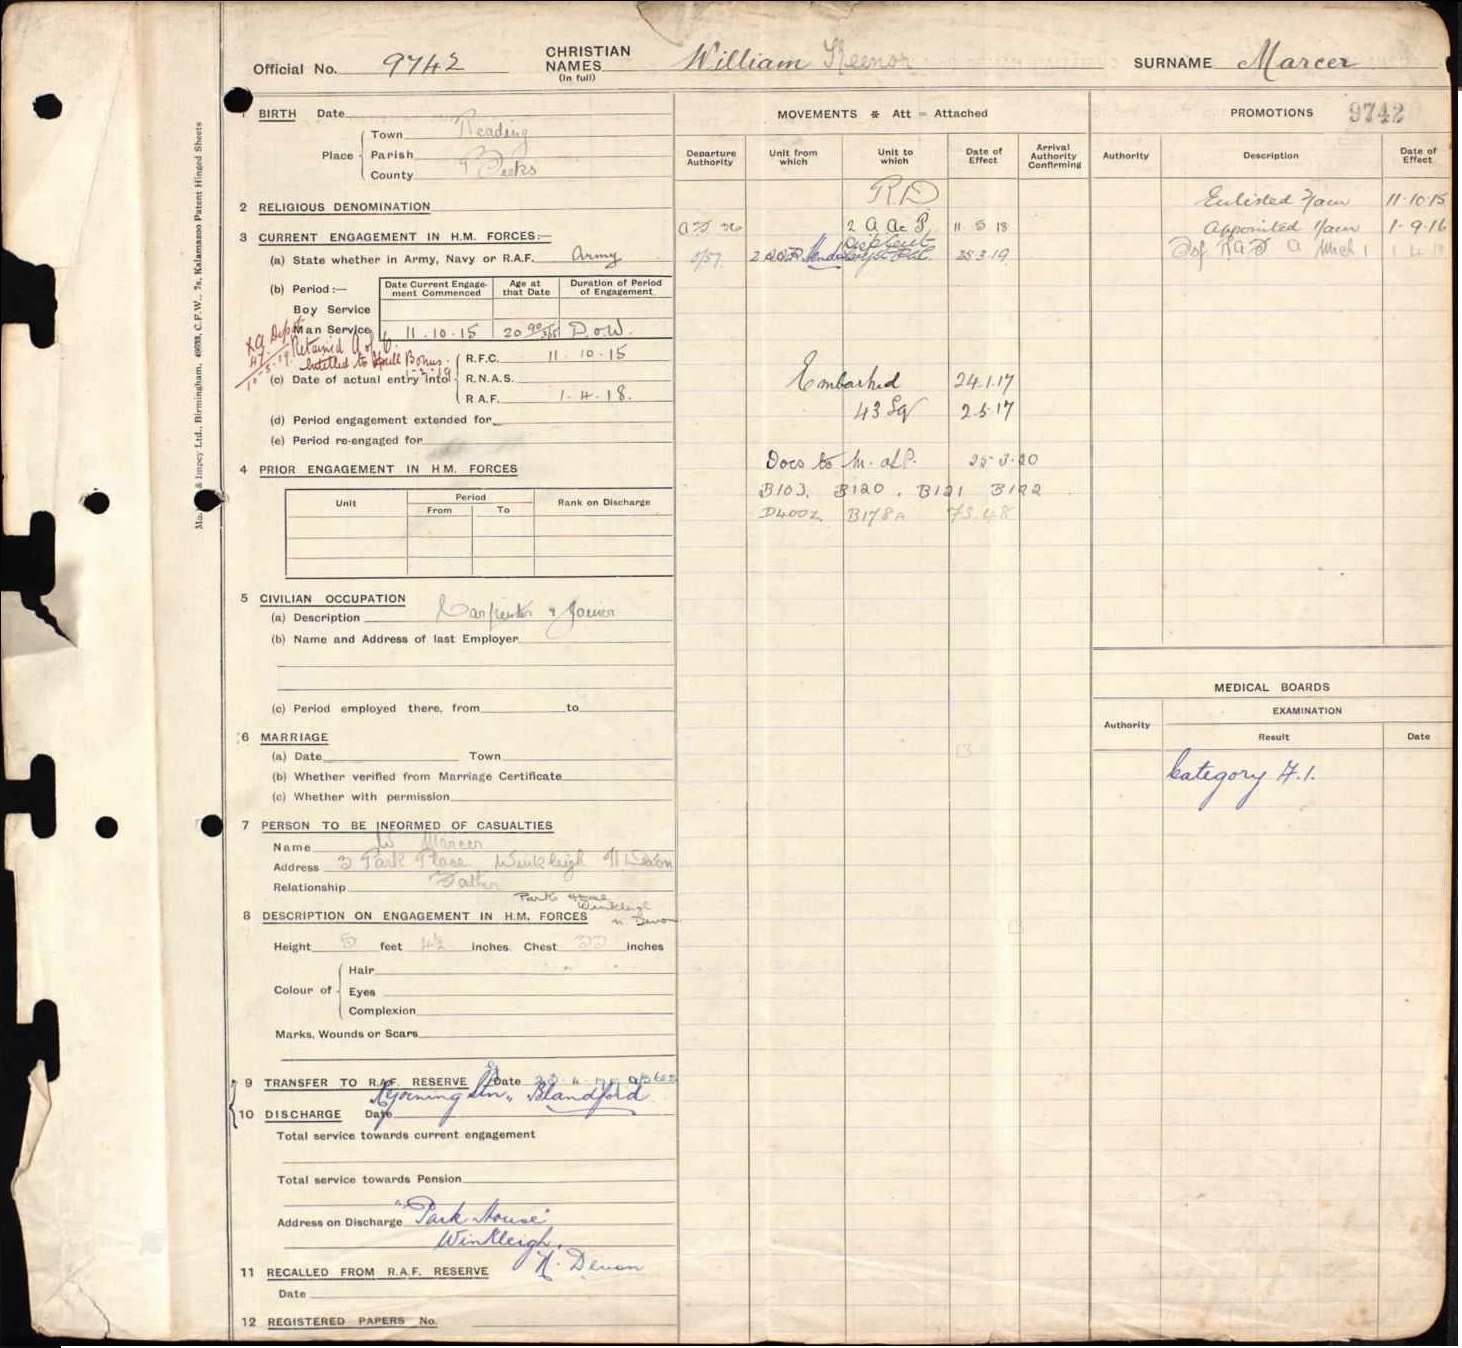 Official No. 9742 CHRISTIAN NAMES (In full) William Keenor SURNAME Marcer
1 BIRTH Date
Place
Town Reading
Parish
County Berks
2 RELIGIOUS DENOMINATION
3 CURRENT ENGAGEMENT IN H.M. FORCES:—
(a) State whether in Army, Navy or R.A.F. Army
(b) Period:—
Date Current Engagement Commenced Age at that Date Duration of Period of Engagement
Boy Service
Man Service 11.10.15 20 D.o.W.
Retained A of O.
entitled to Bonus
(c) Date of actual entry into
R.F.C. 11 10 15
R.N.A.S.
R.A.F. 1.4.18.
(d) Period engagement extended for
(e) Period re-engaged for
4 PRIOR ENGAGEMENT IN H.M. FORCES
Unit Period Rank on Discharge
From To
5 CIVILIAN OCCUPATION
(a) Description Carpenter & Joiner
(b) Name and Address of last Employer
(c) Period employed there, from to
6 MARRIAGE
(a) Date Town
(b) Whether verified from Marriage Certificate
(c) Whether with permission
7 PERSON TO BE INFORMED OF CASUALTIES
Name W Marcer
Address 3 Park Place Winkleigh N Devon
Relationship Father
Park House
Winkleigh
N. Devon
8 DESCRIPTION ON ENGAGEMENT IN H.M. FORCES
Height 5 feet 4½ inches. Chest 33 inches
Colour of
Hair
Eyes
Complexion
Marks, Wounds or Scars
9 TRANSFER TO R.A.F. RESERVE Date
Rejoining Stn. Blandford
10 DISCHARGE Date
Total service towards current engagement
Total service towards Pension
Address on Discharge "Park House"
Winkleigh,
N. Devon
11 RECALLED FROM R.A.F. RESERVE
Date
12 REGISTERED PAPERS No.
MOVEMENTS * Att = Attached
Departure Authority Unit from which Unit to which Date of Effect Arrival Authority Confirming
RD
2 A Ac P 11 5 18
25.3.19
Embarked 24.1.17
43 Sq 2.5.17
Docs to M. of P. 25.3.20
B103. B120. B121 B122
D400Z B178a
PROMOTIONS 9742
Authority Description Date of Effect
Enlisted 2/am 11.10.15
Appointed 1/am 1.9.16
RAF A Mech 1 1 4 18
MEDICAL BOARDS
Authority EXAMINATION
Result Date
Category A.1.
& Impey Ltd., Birmingham, C.F.W., 7s, Kalamazoo Patent Hinged Sheets